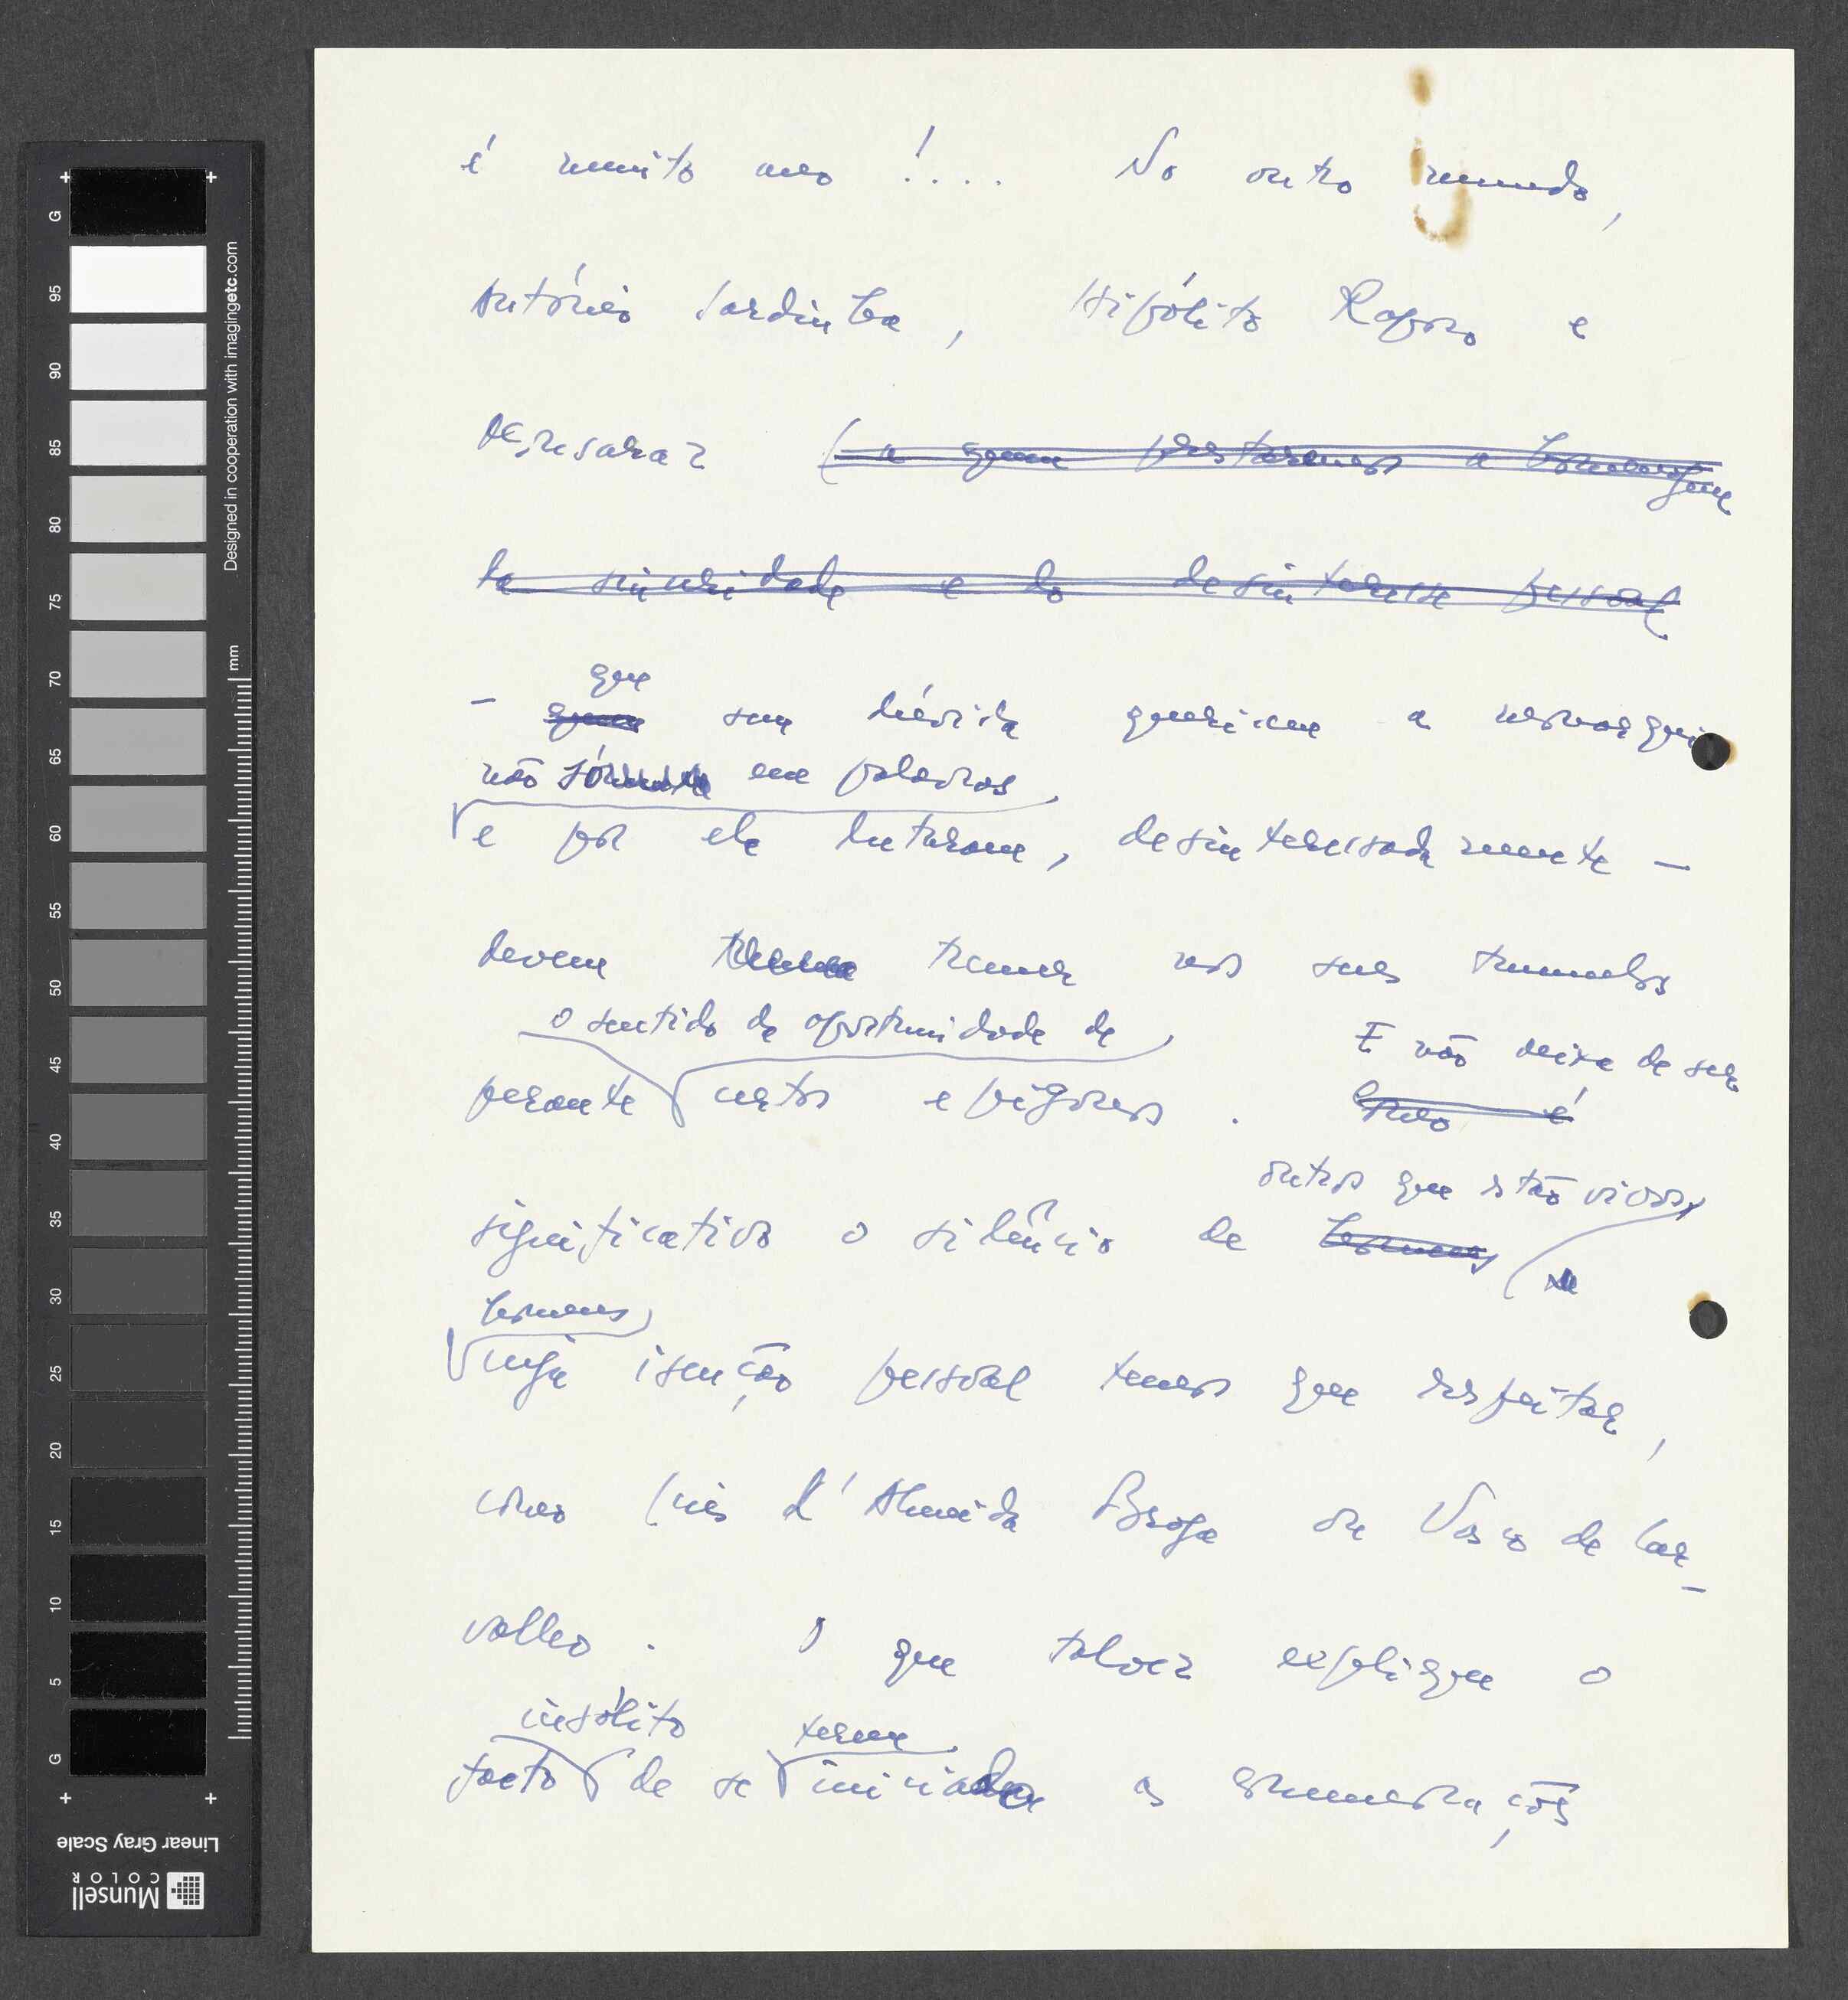 é muito mau !.... No outro mundo,
António Sardinha, Hipólito Raposo e
Pequito (a quem prestaremos a homenagem
da sinceridade e do desinteresse pessoal
que
- quem sem dúvida queriam a
não somente em palavras
e por ela lutaram, desinteressadamente -
devem tremer nos seus tumulos
o sentido de oportunidade de
E não deixa de ser
perante certos epígonos.
é
outros que estão vivos,
significativo o silêncio de homens
homens
cuja isenção pessoal temos que respeitar,
como Luís d'Almeida Braga ou Vasco de Car-
valho. O que talvez explique o
insólito terem
facto de se iniciado as comemorações
G
95
90
85
80
75
70
65
60
55
50
45
40
35
30
25
20
15
10
5
G
mm
Designed in cooperation with imagingetc.com
Linear Gray Scale
Munsell
COLOR